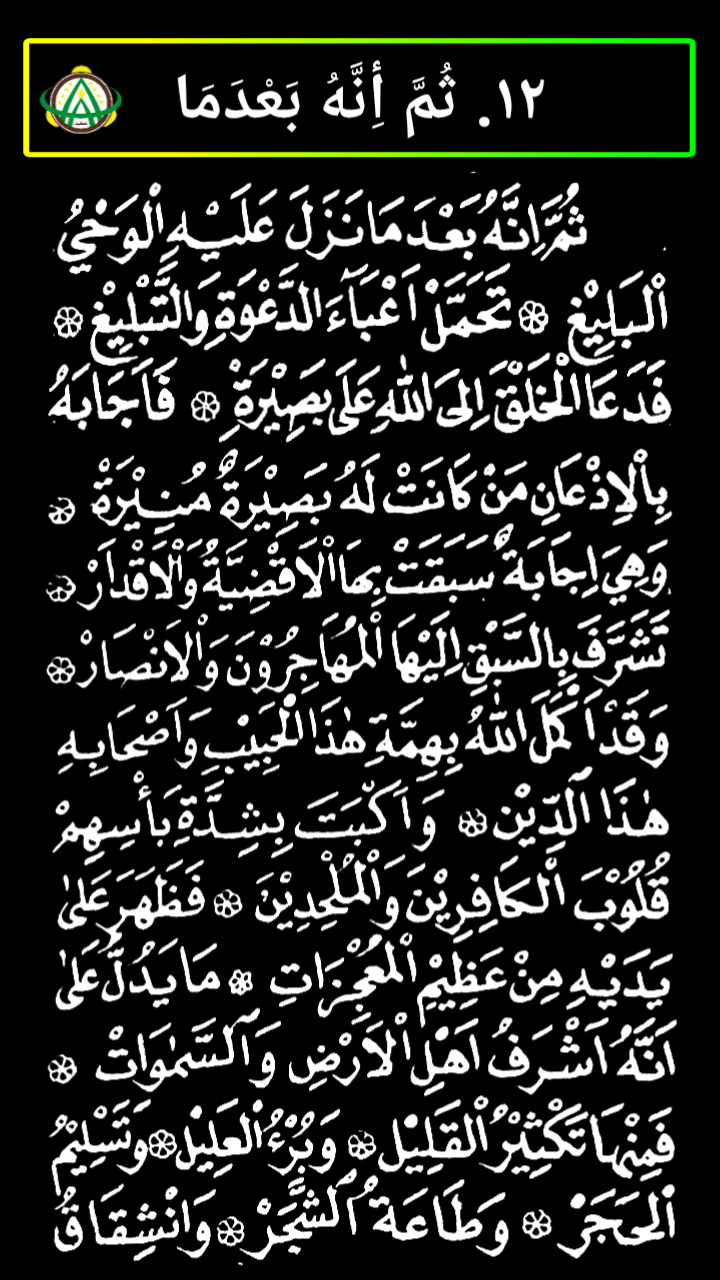 ١٢. ثُمَّ أِنَّهُ بَعْدَمَا
ثُمَّ اِنَّهُ بَعْدَ مَا نَزَلَ عَلَيْهِ الْوَحْيُ
الْبَلِيْغِ ۞ تَحَمَّلَ اَعْبَآءَ الدَّعْوَةِ وَالتَّبْلِيْغِ ۞
فَدَعَا الْخَلْقَ اِلَى اللّٰهِ عَلَى بَصِيْرَةٍ ۞ فَاَجَابَهُ
بِالْاِذْعَانِ مَنْ كَانَتْ لَهُ بَصِيْرَةٌ مُنِيْرَةْ ۞
وَهِيَ اِجَابَةٌ سَبَقَتْ بِهَا الْاَقْضِيَّةُ وَالْاَقْدَارْ ۞
تَشَرَّفَ بِالسَّبْقِ اِلَيْهَا الْمُهَاجِرُوْنَ وَالْاَنْصَارْ ۞
وَقَدْ اَكْمَلَ اللّٰهُ بِهِمَّةِ هٰذَا الْحَبِيْبِ وَاَصْحَابِهِ
هٰذَا الدِّيْنَ ۞ وَاَكْبَتَ بِشِدَّةِ بَأْسِهِمْ
قُلُوْبَ الْكَافِرِيْنَ وَالْمُلْحِدِيْنَ ۞ فَظَهَرَ عَلىٰ
يَدَيْهِ مِنْ عَظِيْمِ الْمُعْجِزَاتِ ۞ مَا يَدُلُّ عَلىٰ
اَنَّهُ اَشْرَفُ اَهْلِ الْاَرْضِ وَالسَّمٰوَاتْ ۞
فَمِنْهَا تَكْثِيْرُ الْقَلِيْل ۞ وَبُرْءُ الْعَلِيْل ۞ وَتَسْلِيْمُ
الْحَجَرْ ۞ وَطَاعَةُ الشَّجَرْ ۞ وَانْشِقَاقُ